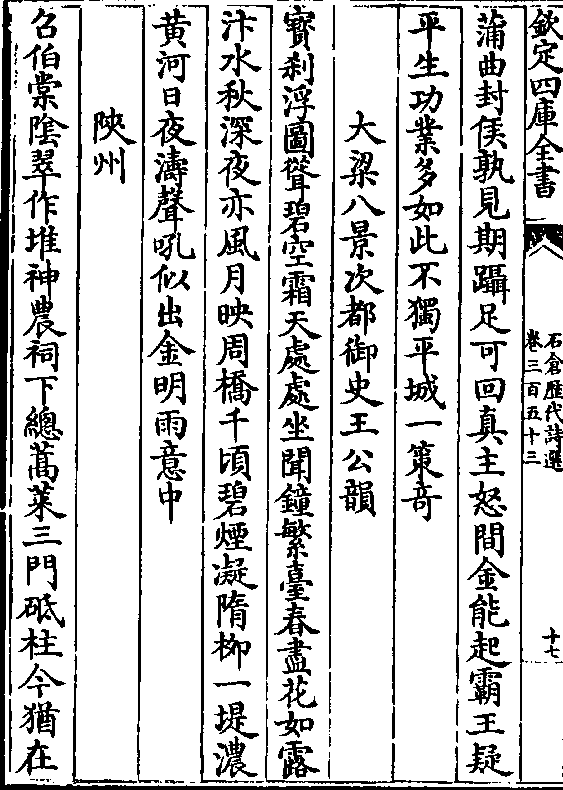 欽定四庫全書
石倉歴代詩選
卷三百五十三
十七
蒲曲封侯孰見期躡足可回真主怒間金能起霸王疑
平生功業多如此不獨平城一策奇
大梁八景次都御史王公韻
寳刹浮圖聳碧空霜天處處坐聞鐘繁臺春盡花如露
汴水秋深夜亦風月映周橋千頃碧煙凝隋栁一堤濃
黄河日夜濤聲吼似出金明雨意中
陜州
召伯棠陰翠作堆神農祠下總蒿萊三門砥柱今猶在